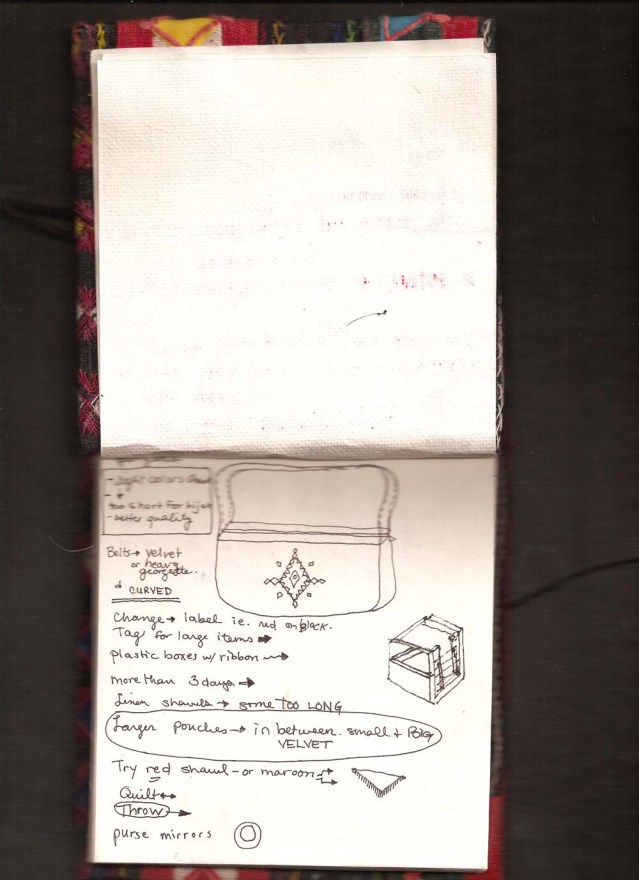 - light colors
too short for hijab
- better quality
Belts → velvet
or heavy
georgette.
CURVED
Change → label ie. red on black.
Tag for large items →
plastic boxes w/ ribbon →
more than 3 days →
Linen shawls → some TOO LONG
Larger pouches → in between. small + Big
VELVET
Try red shawl - or maroon
Quilt ↔
Throw →
purse mirrors